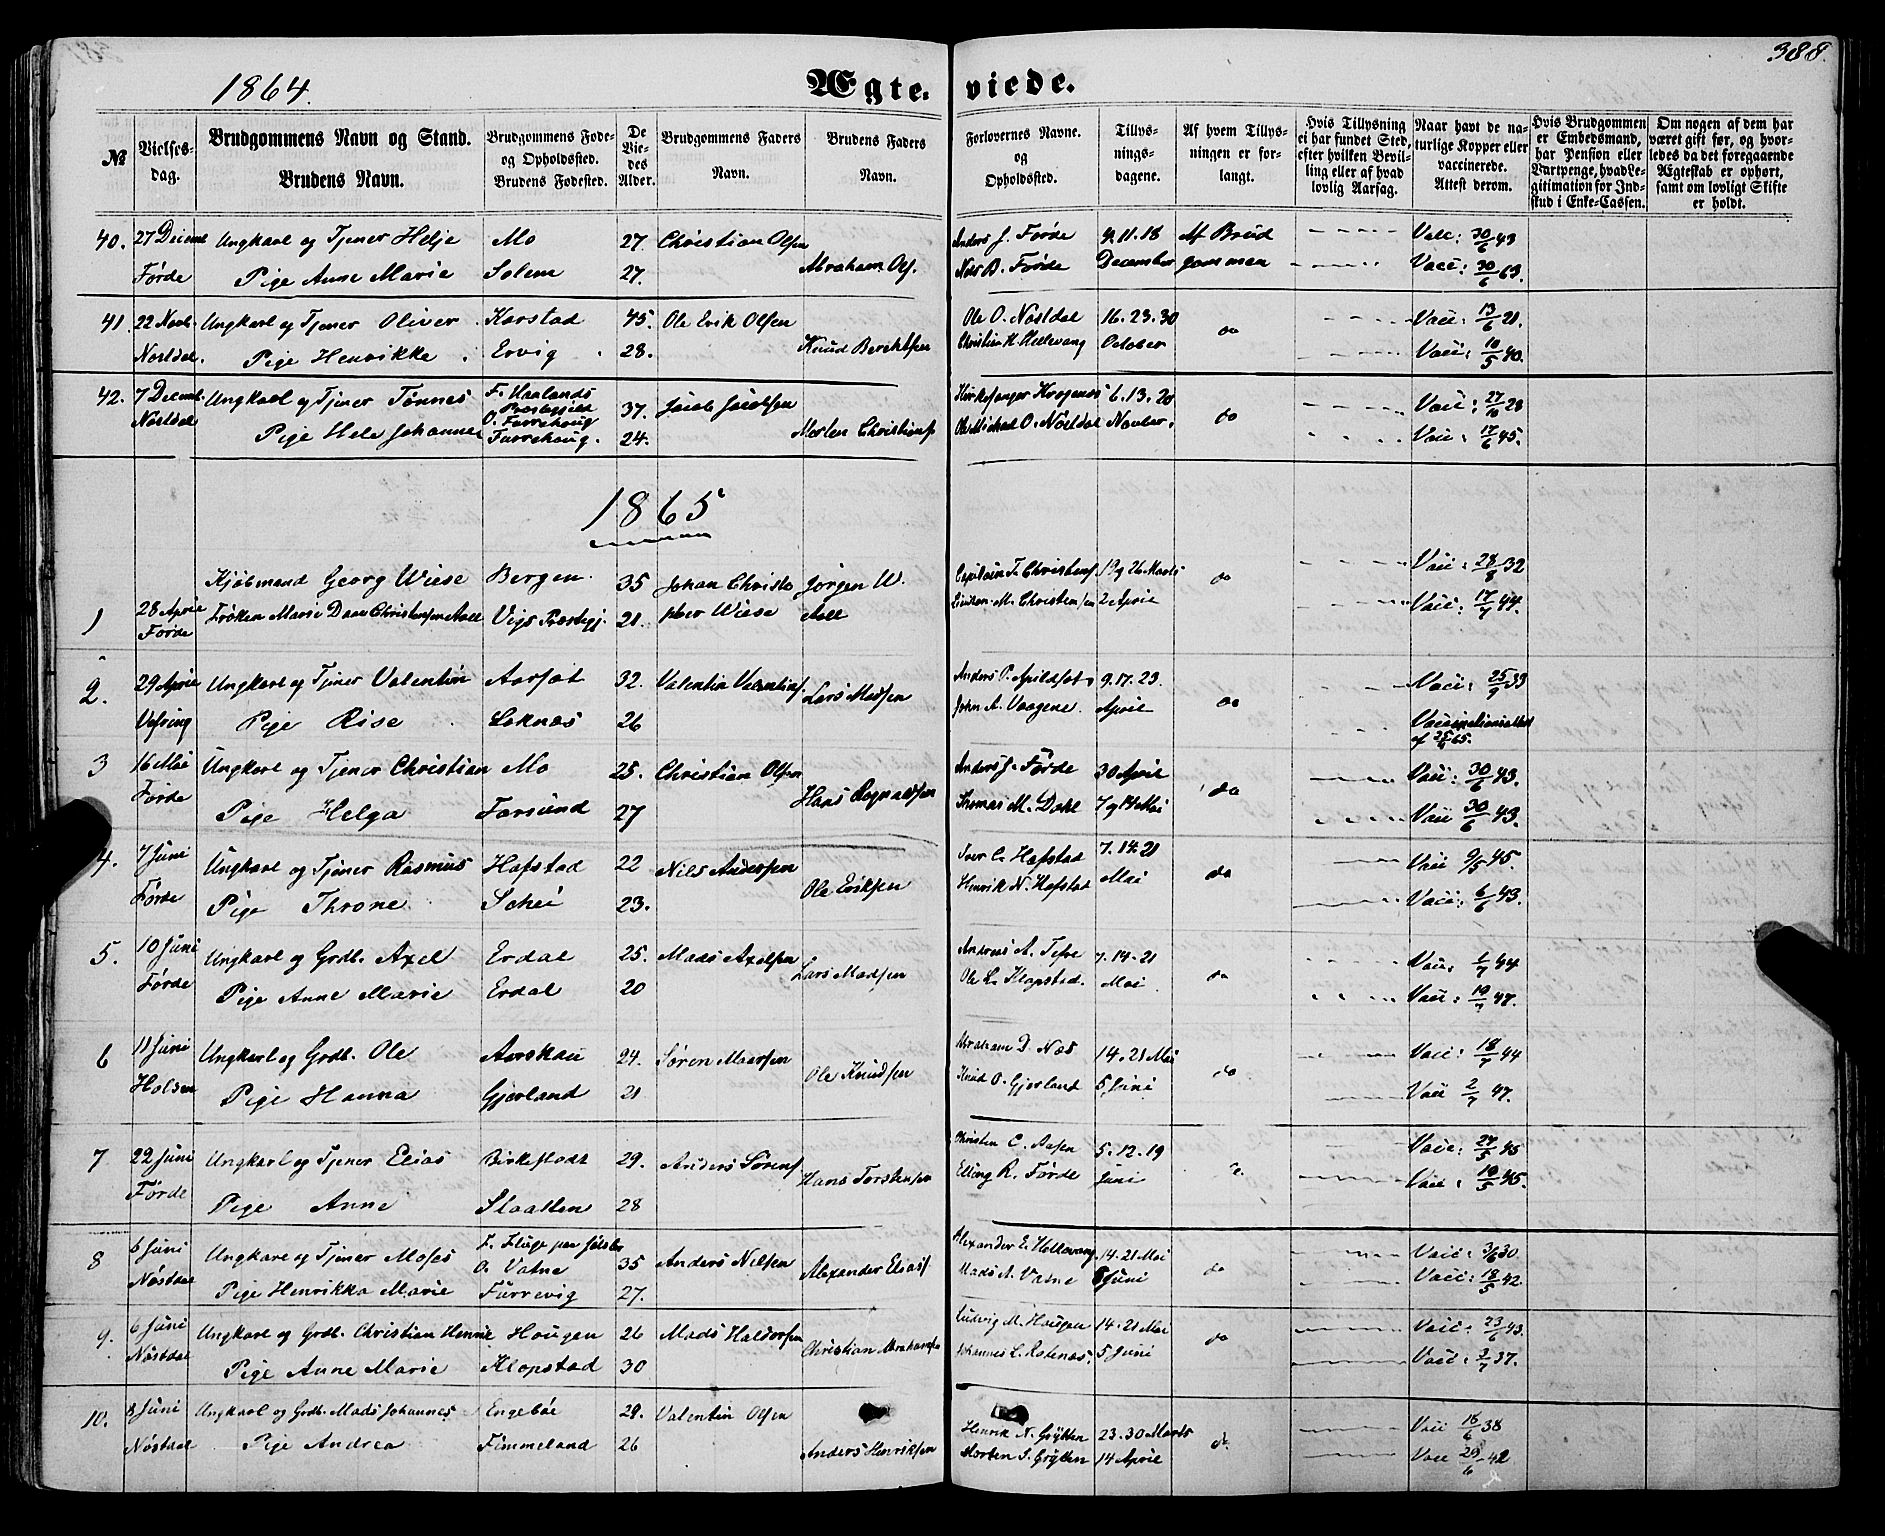 388.
1864.
Ægte. viede.
№
Vielses-
dag.
Brudgommens Navn og Stand.
Brudens Navn.
Brudgommens Føde-
og Opholdssted.
Brudens Fødested.
De
Vie-
des
Alder.
Brudgommens Faders
Navn.
Brudens Faders
Navn.
Forlovernes Navne.
og
Opholdssted.
Tillys-
nings-
dagene.
Af hvem Tillys-
ningen er for-
langt.
Hvis Tillysning
ei har fundet Sted,
efter hvilken Bevil-
ling eller af hvad
lovlig Aarsag.
Naar havt de na-
turlige Kopper eller
vaccinerede.
Attest derom.
Hvis Brudgommen
er Embedsmand,
har Pension eller
Vartpenge, hvad Le-
gitimation for Ind-
skud i Enke-Cassen.
Om nogen af dem har
været gift før, og hvor-
ledes da det foregaaende
Ægteskab er ophørt,
samt om lovligt Skifte
er holdt.
40. 27 Decembr Ungkarl og Tjener Helje Mo 27. Christian Olsen Anders J. Førde 4. 11. 18 Af Brud Vacc: 30/6 43
Førde Pige Anne Marie Solem 27. Abraham Ols. Nils B. Førde December gommen Vacc: 30/6 63.
41. 22 Novb. Ungkarl og Tjener Oliver Karstad 45. Ole Erik Olsen Ole O. Nøstdal 16. 23. 30 do Vacc: 13/6 21.
Nøstdal. Pige Henrikke Ervig 28. Knud Berentsen Christian H. Hellevang October Vacc: 10/5 40.
42. 7 Decemb. Ungkarl og Tjener Tønnes F. Haalands Præstegjeld O. Furrehoug 37. Jacob Jacobsen Kirkesanger 6. 13. 20 do Vacc: 27/10 28
Nøstdal Pige Hele Johanne Furrehoug. 24. Morten Christians. Ole Michael O. Nøstdal Novber. Vacc: 17/6 45.
1865
1 28 April Førde Kjøbmand Georg Wiese Bergen. 35 Johan Christo Jørgen W. Capitain T. Christens. 19 og 26 Marts do Vacc: 28/8 32
Frøken Marie Dom Christensen Aall Vigs Præstegj. 21. pher Wiese Aall M. Christensen 2 April Vacc: 17/7 44.
2. 29 April Ungkarl og Tjener Valentin Aarsæt 32. Valentin Valentins. Lars Madsen Anders P. 9. 17. 23. do Vacc: 25/9 33
Vefring Pige Rise Løknæs 26 John A. Vaagene. April Vaccinationsattest af 25/4 65.
3 16 Mai Ungkarl og Tjener Christian Mo 25. Christian Olsen Anders J. Førde 30 April do Vacc: 30/6 43.
Førde Pige Helga Farsund 27 Hans Rognaldsen Thomas M. Dahl 7 og 14 Mai Vacc 30/6 43.
4. 7 Juni Ungkarl og Tjener Rasmus Hafstad 22 Nils Andersen Iver C. Hafstad 7. 14. 21 do Vacc 9/5 45.
Førde Pige Throne Schei 23. Ole Eriksen Henrik N. Hafstad Mai Vacc: 6/6 43.
5. 10 Juni Ungkarl og Grdb. Axel Erdal 25. Mads Axelsen Andreas A. Tefre 7. 14. 21 do Vacc: 1/7 44
Førde Pige Anne Marie Erdal 20 Lars Madsen Ole L. Klopstad. Mai Vacc: 19/7 47.
6 11 Juni Ungkarl og Grdb. Ole Aarskau 24. Søren Madsen Abraham D. Næs 14. 21 Mai do Vacc: 18/7 44
Holsen Pige Hanna Gjerland 21 Ole Knudsen Knud O. Gjerland 5 Juni Vacc 2/7 47.
7 22 Juni Ungkarl og Tjener Elias Birkestadt 29. Anders Sørens. Christen C. Aasen 5. 12. 19 do Vacc: 27/5 45
Førde Pige Anne Slaatten 28 Hans Torstensen Elling R. Førde Juni Vacc: 19/5 45.
8 6 Juni Ungkarl og Tjener F. Fluge paa Jølster Moses O. Vatne 35 Anders Nilsen Alexander E. Hellevang 14. 21 Mai do Vacc: 3/6 30
Nøstdal Pige Henrikka Marie Furrevig 27. Alexander Elias. Mads A. Vatne 5 Juni Vacc: 18/5 42.
9. 6 Juni Ungkarl og Grdb. Christian Henrik Hougen 26 Mads Haldorsen Ludvig M. Haugen 14. 21 Mai do Vacc: 23/6 43.
Nøstdal Pige Anne Marie Klopstad 30 Christian Abrahamsen Johannes L. Rotenæs. 5 Juni Vacc: 2/7 37.
10. 8 Juni Ungkarl og Grdb. Mads Johannes Engebøe 29. Valentin Olsen Henrik N. Grytten 23. 30 Marts do. Vacc 16/6 38
Nøstdal Pige Andrea Fimmeland 26 Anders Henriksen Morten S. Grytten 14 April Vacc 29/6 42